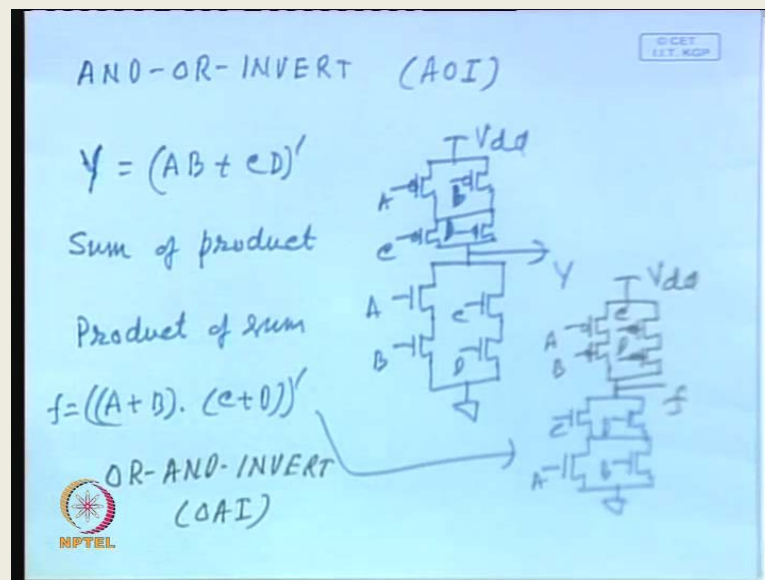 © CET
I.I.T. KGP
AND-OR-INVERT (AOI)
Y = (AB + CD)'
Sum of product
Product of sum
f = ((A+B). (C+D))'
OR-AND-INVERT
(OAI)
Vdd
A
B
C
D
Y
A
C
B
D
Vdd
A
C
B
D
f
C
D
A
B
NPTEL